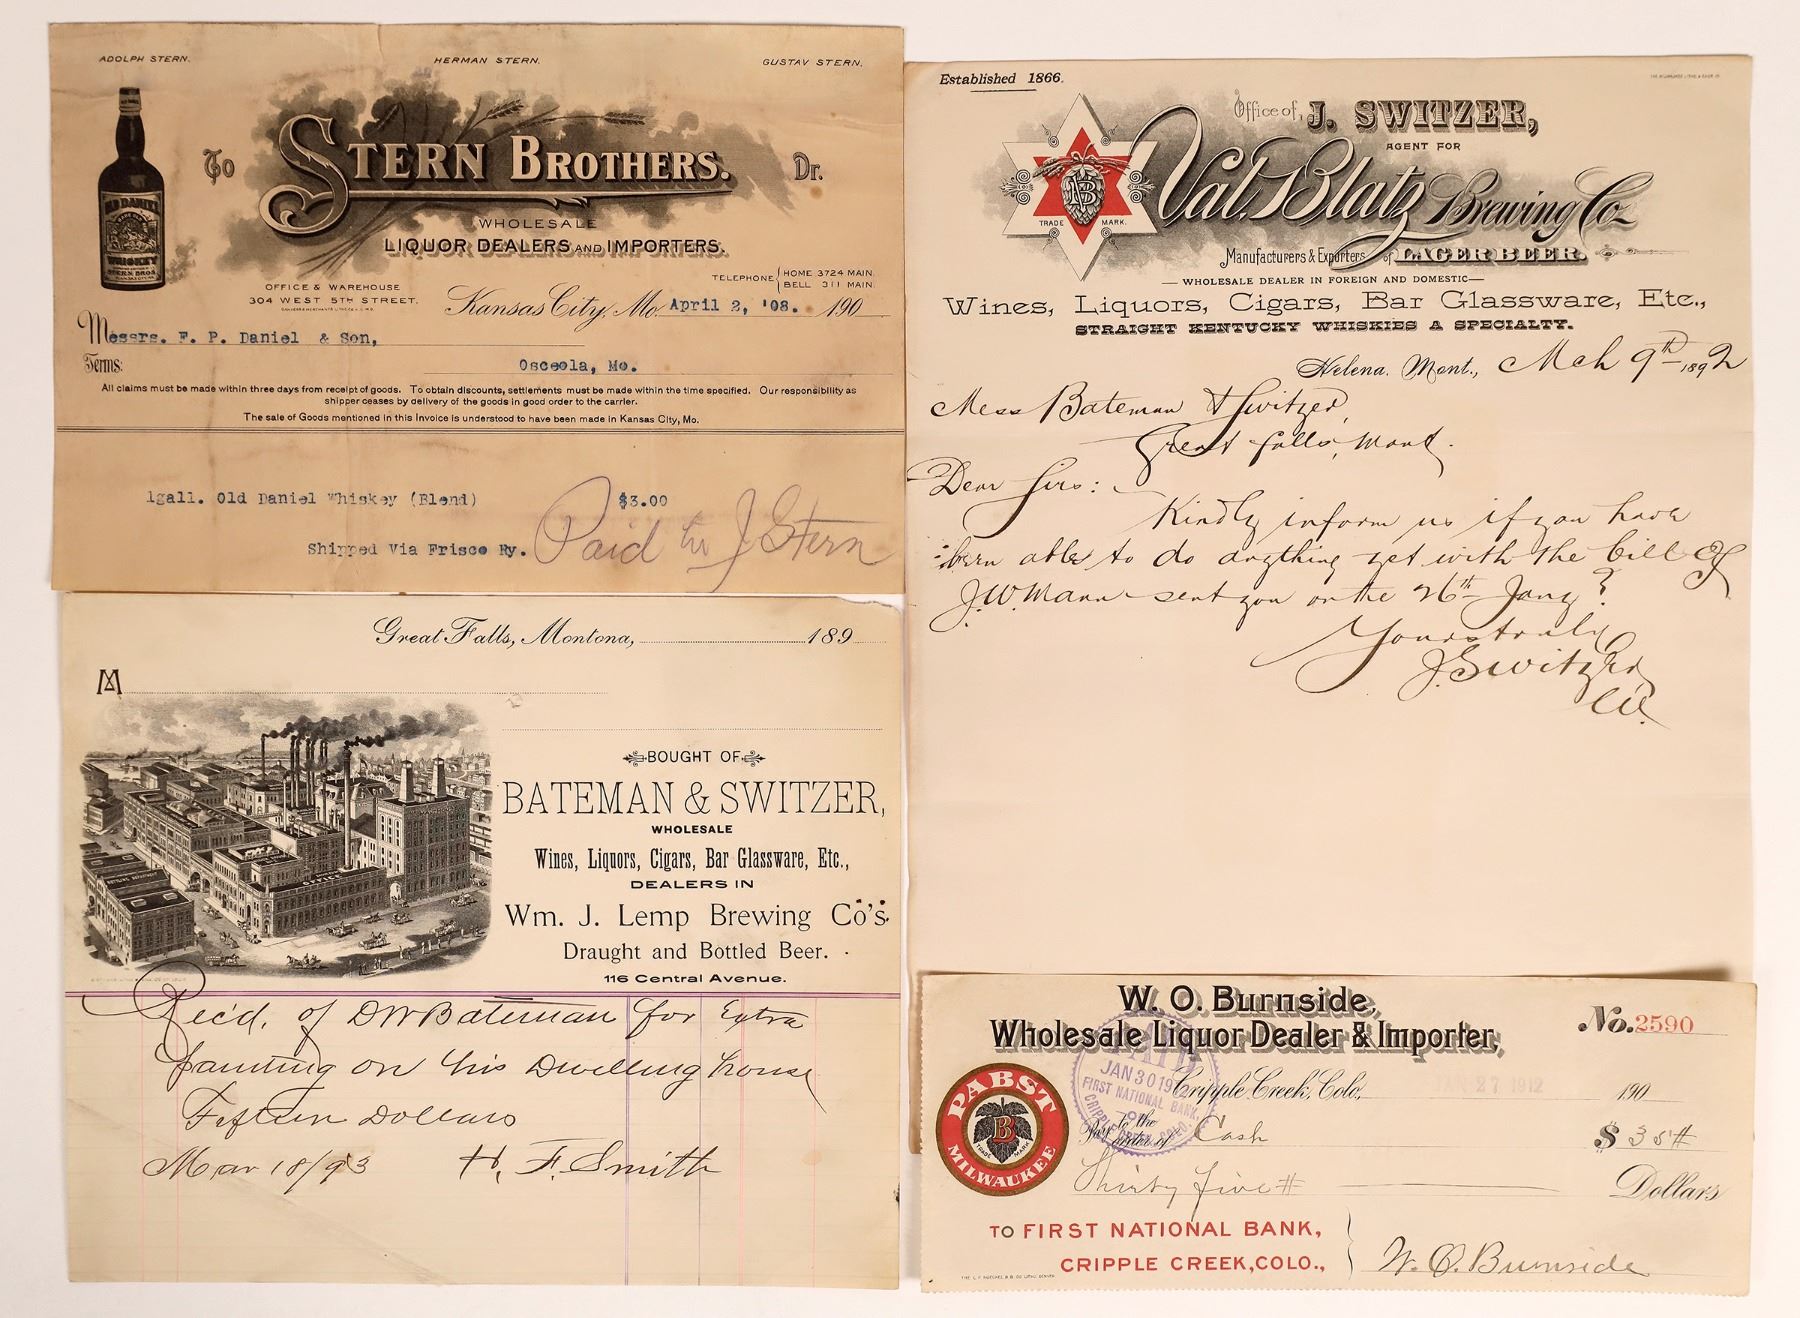 ADOLPH STERN. HERMAN STERN. GUSTAV STERN.
To STERN BROTHERS. Dr.
OLD DANIEL
WHISKEY
STERN BROS.
WHOLESALE
LIQUOR DEALERS AND IMPORTERS.
TELEPHONE { HOME 3724 MAIN.
BELL 311 MAIN.
OFFICE & WAREHOUSE
304 WEST 5TH STREET.
Kansas City, Mo. April 2, '08. 190
Messrs. F. P. Daniel & Son,
Terms: Osceola, Mo.
All claims must be made within three days from receipt of goods. To obtain discounts, settlements must be made within the time specified. Our responsibility as
shipper ceases by delivery of the goods in good order to the carrier.
The sale of Goods mentioned in this Invoice is understood to have been made in Kansas City, Mo.
1gall. Old Daniel Whiskey (Blend) $3.00
Shipped Via Frisco Ry.
Paid to J Stern
Great Falls, Montona, 189
M
BOUGHT OF
BATEMAN & SWITZER,
WHOLESALE
Wines, Liquors, Cigars, Bar Glassware, Etc.,
DEALERS IN
Wm. J. Lemp Brewing Co's.
Draught and Bottled Beer.
116 Central Avenue.
OFFICE
Rec'd. of DWBateman for Extra
painting on his Dwelling house
Fifteen Dollars
Mar 18/93 H. F. Smith
Established 1866.
Office of J. SWITZER,
AGENT FOR
Val. Blatz Brewing Co
TRADE MARK.
Manufacturers & Exporters of LAGER BEER.
WHOLESALE DEALER IN FOREIGN AND DOMESTIC
Wines, Liquors, Cigars, Bar Glassware, Etc.,
STRAIGHT KENTUCKY WHISKIES A SPECIALTY.
Helena, Mont., Mch 9th 1892
Mess Bateman & Switzer,
Great Falls, Mont.
Dear Sirs:
Kindly inform us if you have
been able to do anything yet with the bill of
J.W. Mann sent you on the 26th Jany?
Yours truly
J. Switzer
W. O. Burnside,
Wholesale Liquor Dealer & Importer,
No. 2590
Cripple Creek, Colo., JAN 27 1912 190
PAID
JAN 30 19
FIRST NATIONAL BANK
CRIPPLE CREEK, COLO.
Pay to the order of Cash $ 35 #
Thirty five # Dollars
PABST
B
TRADE MARK
MILWAUKEE
TO FIRST NATIONAL BANK,
CRIPPLE CREEK, COLO.,
W. O. Burnside